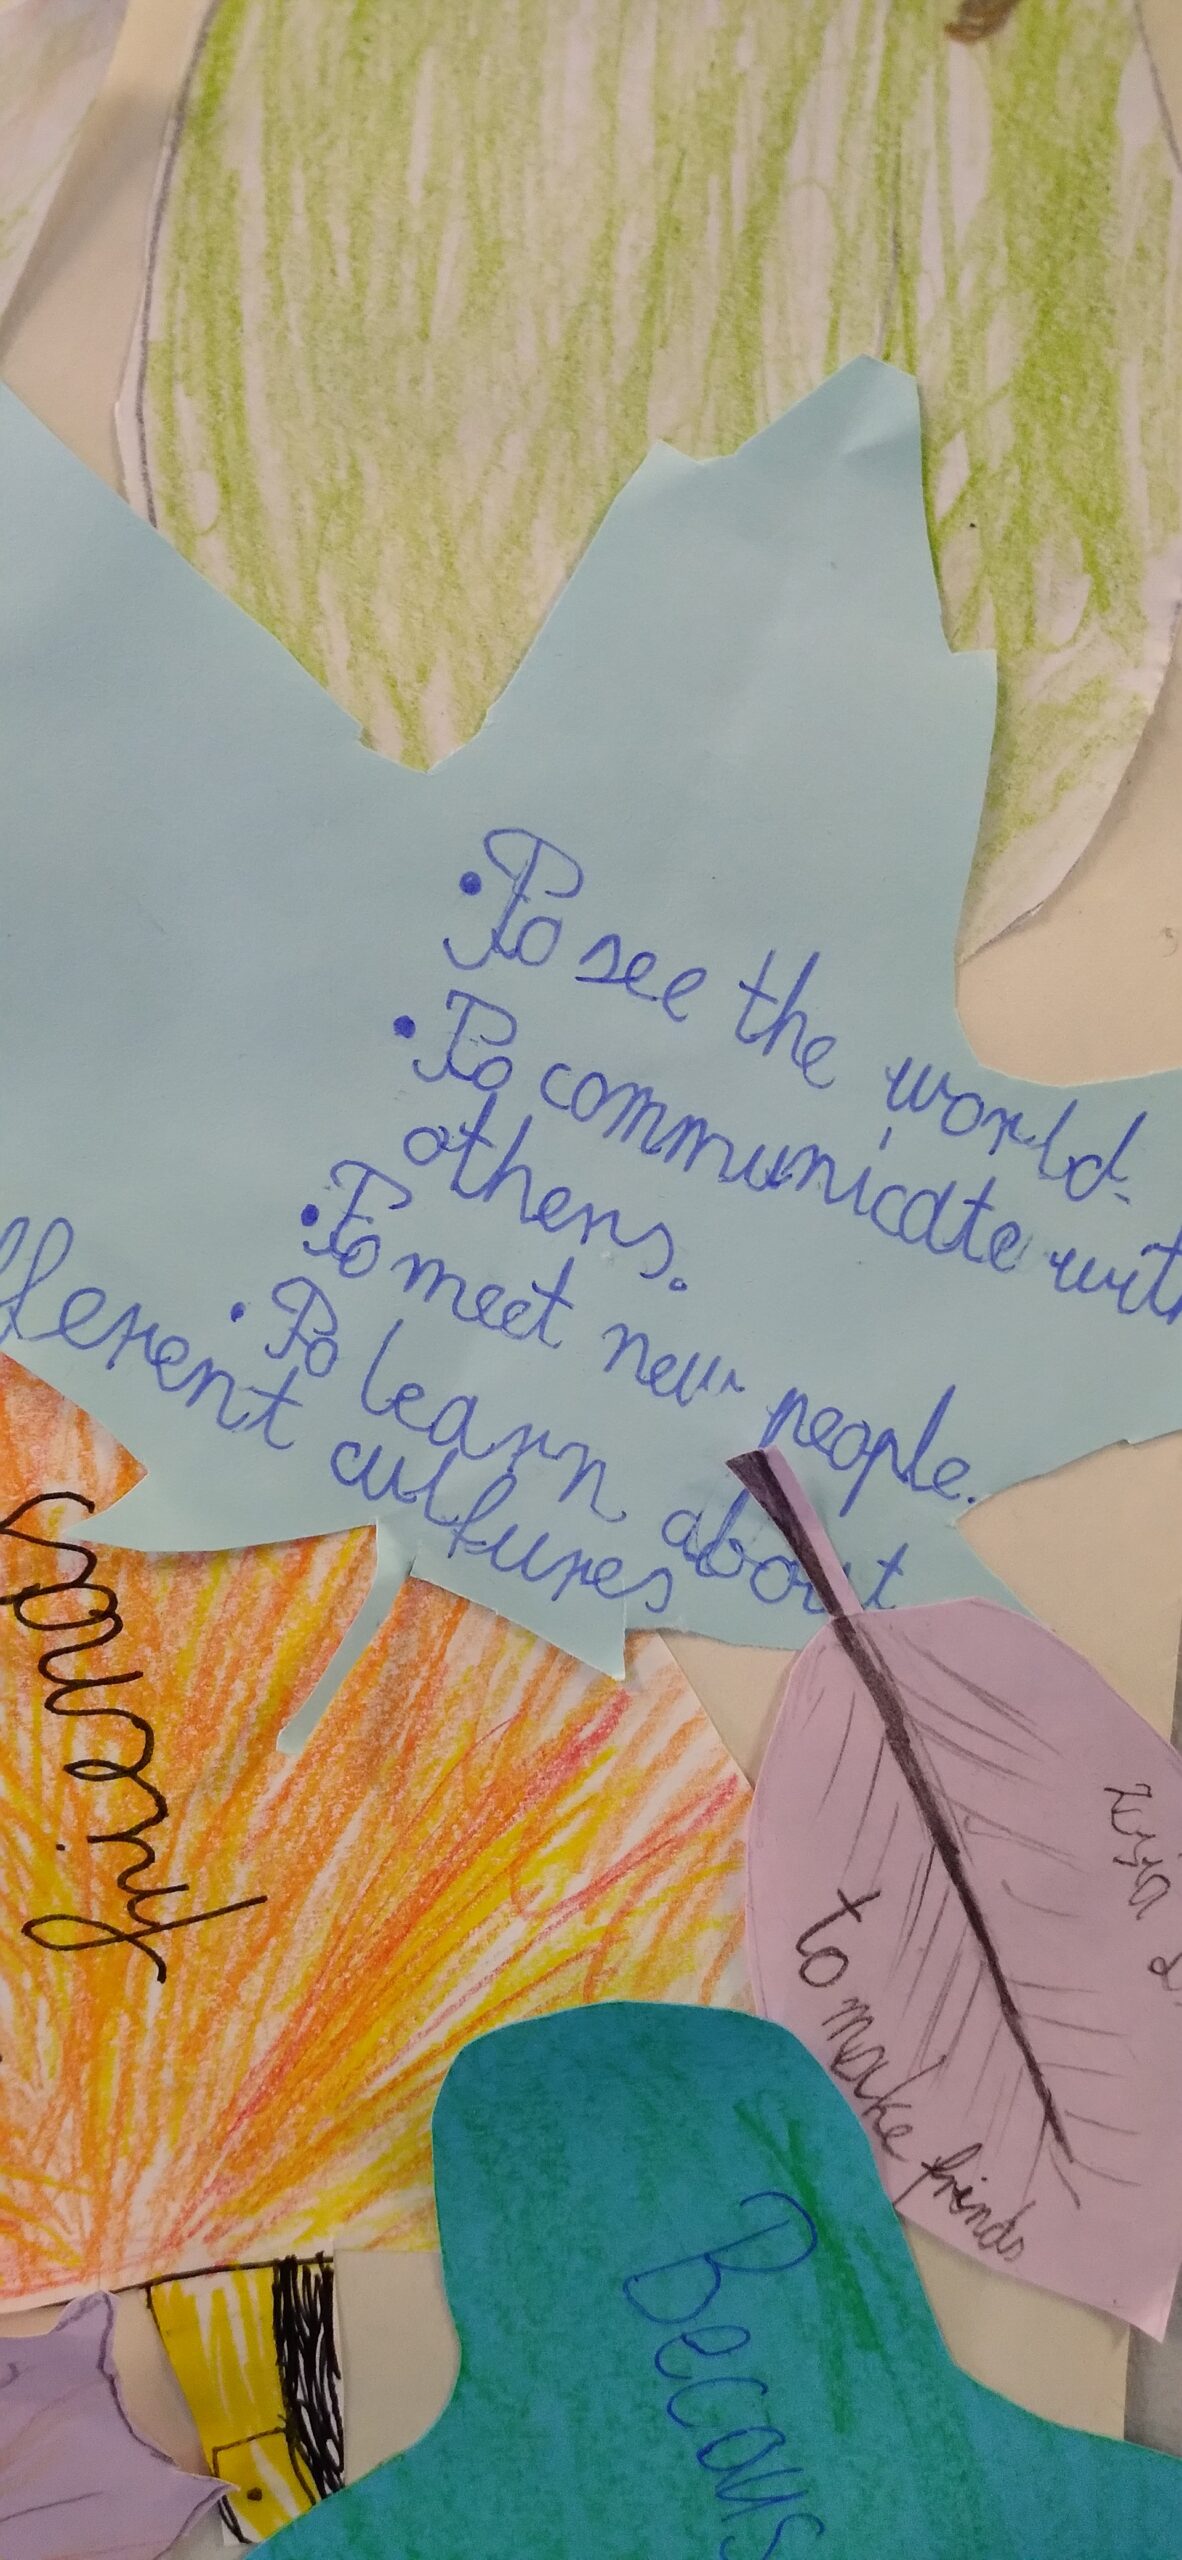 • To see the world.
• To communicate with
others.
• To meet new people.
• To learn about
fferent cultures
to make friends
Becaus